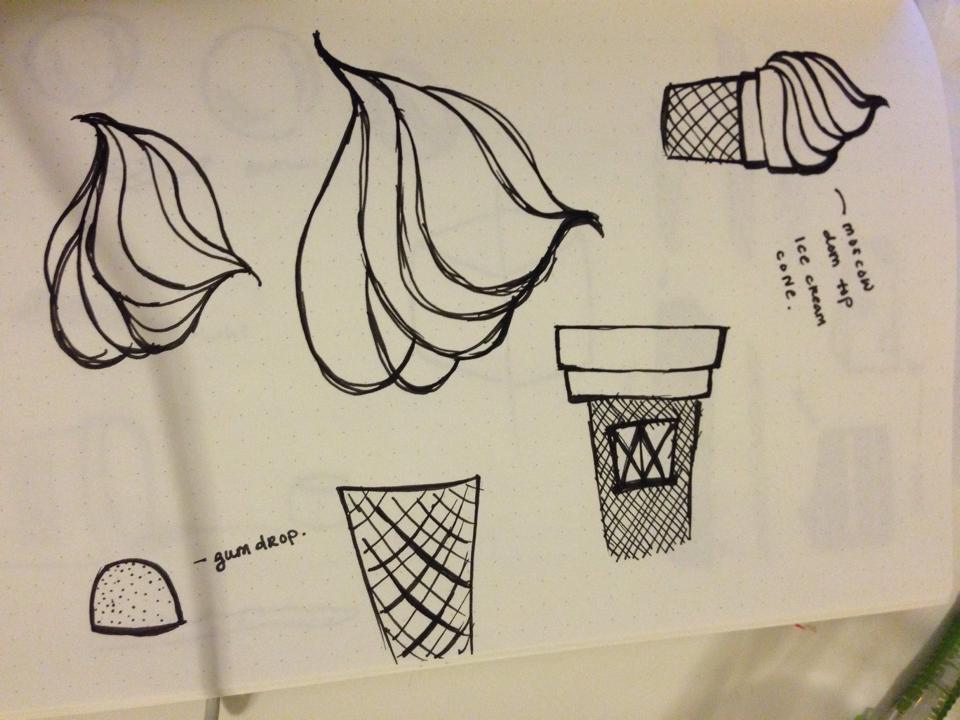 moscow
dom top
ice cream
cone.
- gum drop.